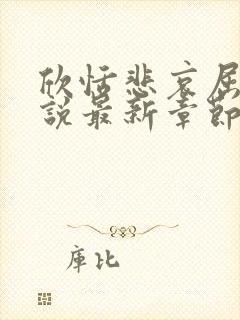 欣恬悲哀屈
說最新章節
庫比